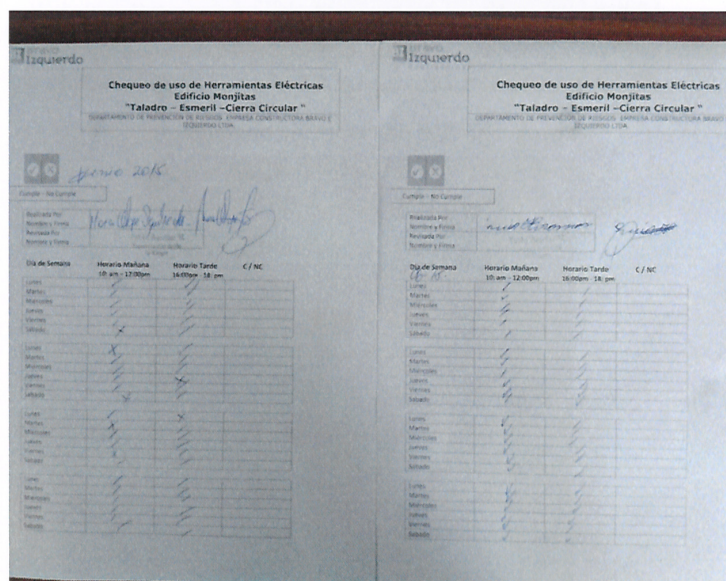 Izquierdo
Chequeo de uso de Herramientas Eléctricas
Edificio Monjitas
"Taladro – Esmeril –Cierra Circular "
DEPARTAMENTO DE PREVENCIÓN DE RIESGOS EMPRESA CONSTRUCTORA BRAVO E
IZQUIERDO LTDA.
junio 2015
Cumple - No Cumple
Realizada Por
Nombre y Firma
Revisada Por
Nombre y Firma
Día de Semana Horario Mañana Horario Tarde C / NC
10: am - 12:00pm 16:00pm - 18: pm
Lunes
Martes
Miercoles
Jueves
Viernes
Sabado
Lunes
Martes
Miercoles
Jueves
Viernes
Sabado
Lunes
Martes
Miercoles
Jueves
Viernes
Sabado
Lunes
Martes
Miercoles
Jueves
Viernes
Sabado
Izquierdo
Chequeo de uso de Herramientas Eléctricas
Edificio Monjitas
"Taladro – Esmeril –Cierra Circular "
DEPARTAMENTO DE PREVENCIÓN DE RIESGOS EMPRESA CONSTRUCTORA BRAVO E
IZQUIERDO LTDA.
Cumple - No Cumple
Realizada Por
Nombre y Firma
Revisada Por
Nombre y Firma
Día de Semana Horario Mañana Horario Tarde C / NC
10: am - 12:00pm 16:00pm - 18: pm
Lunes
Martes
Miercoles
Jueves
Viernes
Sabado
Lunes
Martes
Miercoles
Jueves
Viernes
Sabado
Lunes
Martes
Miercoles
Jueves
Viernes
Sabado
Lunes
Martes
Miercoles
Jueves
Viernes
Sabado